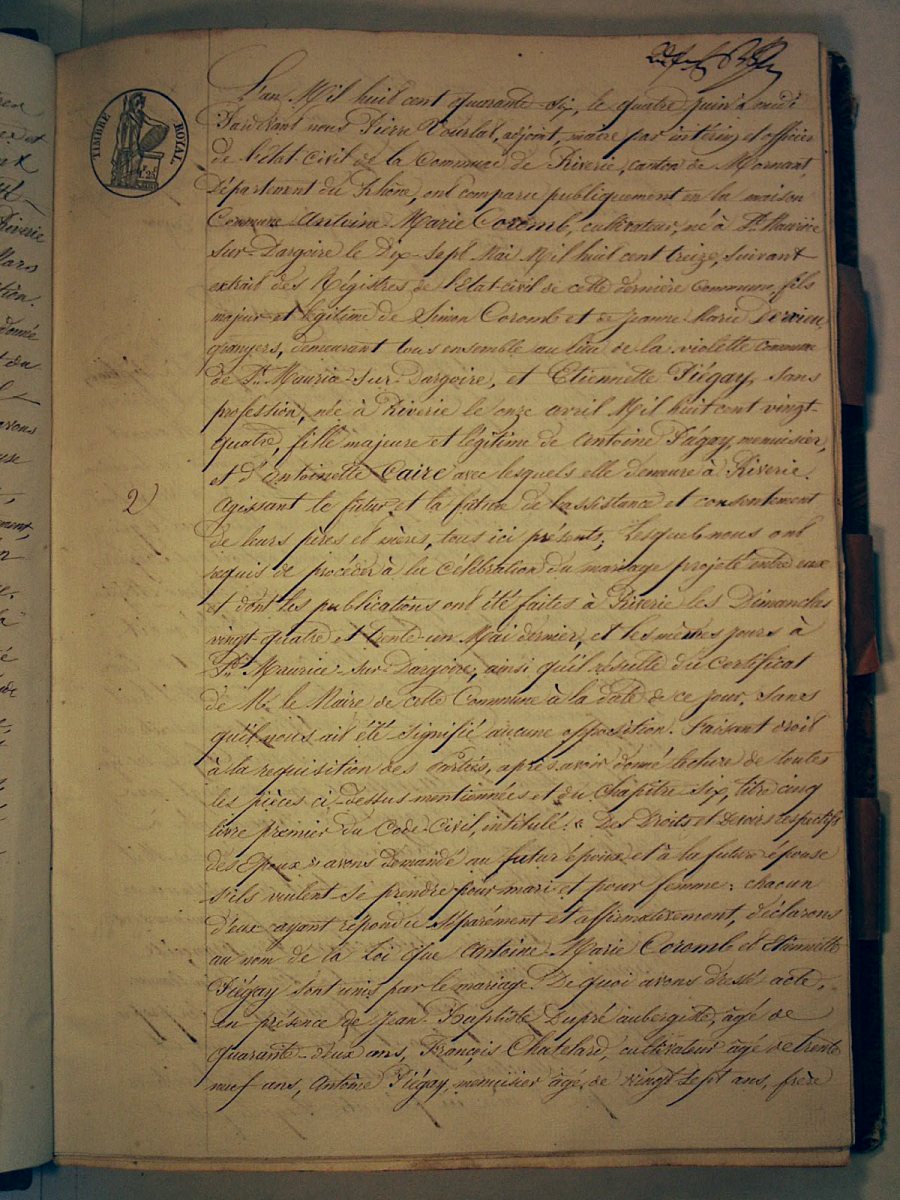 TIMBRE ROYAL
1.25
L'an Mil huit cent quarante six, le quatre juin à midi
Pardevant nous Pierre Pourlat, adjoint, maire par intérim et officier
de l'état civil de la Commune de Riverie, canton de Mornant,
Département du Rhône, ont comparu publiquement en la maison
Commune Antoine Marie Coromb, cultivateur, né à St Maurice
sur-Dargoire le Dix-sept Mai Mil huit cent treize, suivant
extrait des Régistres de l'Etat civil de cette dernière Commune, fils
majeur et légitime de Simon Coromb et de Jeanne Marie
grangers, demeurant tous ensemble au lieu de la violette commune
de St Maurice-sur-Dargoire, et Etiennette Piégay, sans
profession, née à Riverie le onze avril Mil huit cent vingt-
quatre, fille majeure et légitime de Antoine Piégay, menuisier,
et d'Antoinette Caire avec lesquels elle demeure à Riverie.
2)
Agissant le futur et la future de l'assistance et consentement
de leurs pères et mères, tous ici présents; Lesquels nous ont
requis de procéder à la célébration du mariage projeté entre eux
et dont les publications ont été faites à Riverie les Dimanches
vingt-quatre et trente-un Mai dernier, et les mêmes jours à
St Maurice-sur-Dargoire, ainsi qu'il résulte du certificat
de Mr le Maire de cette Commune à la date de ce jour, sans
qu'il nous ait été signifié aucune opposition. Faisant droit
à la requisition des Parties, après avoir donné lecture de toutes
les pièces ci-dessus mentionnées et du Chapitre six, titre cinq
livre premier du Code Civil, intitulé: « Des Droits et devoirs respectifs
des Epoux » avons demandé au futur époux et à la future épouse
s'ils veulent se prendre pour mari et pour femme; chacun
d'eux ayant répondu séparément et affirmativement, déclarons
au nom de la Loi que Antoine Marie Coromb et Etiennette
Piégay sont unis par le mariage. De quoi avons dressé acte,
en présence de Jean-Baptiste Dupré aubergiste, âgé de
quarante-deux ans, François Chatelard, cultivateur âgé de trente
neuf ans, Antoine Piégay, menuisier âgé, de vingt sept ans, frère